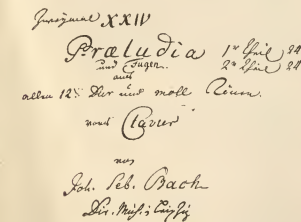 Zweymal XXIV
Præludia 1ʳ Theil 24
und Fugen. 2ʳ Theil 24
aus
allen 12. Dur und moll Tönen.
vors
Clavier
von
Joh. Seb. Bach
Dir. Mus: Leipzig